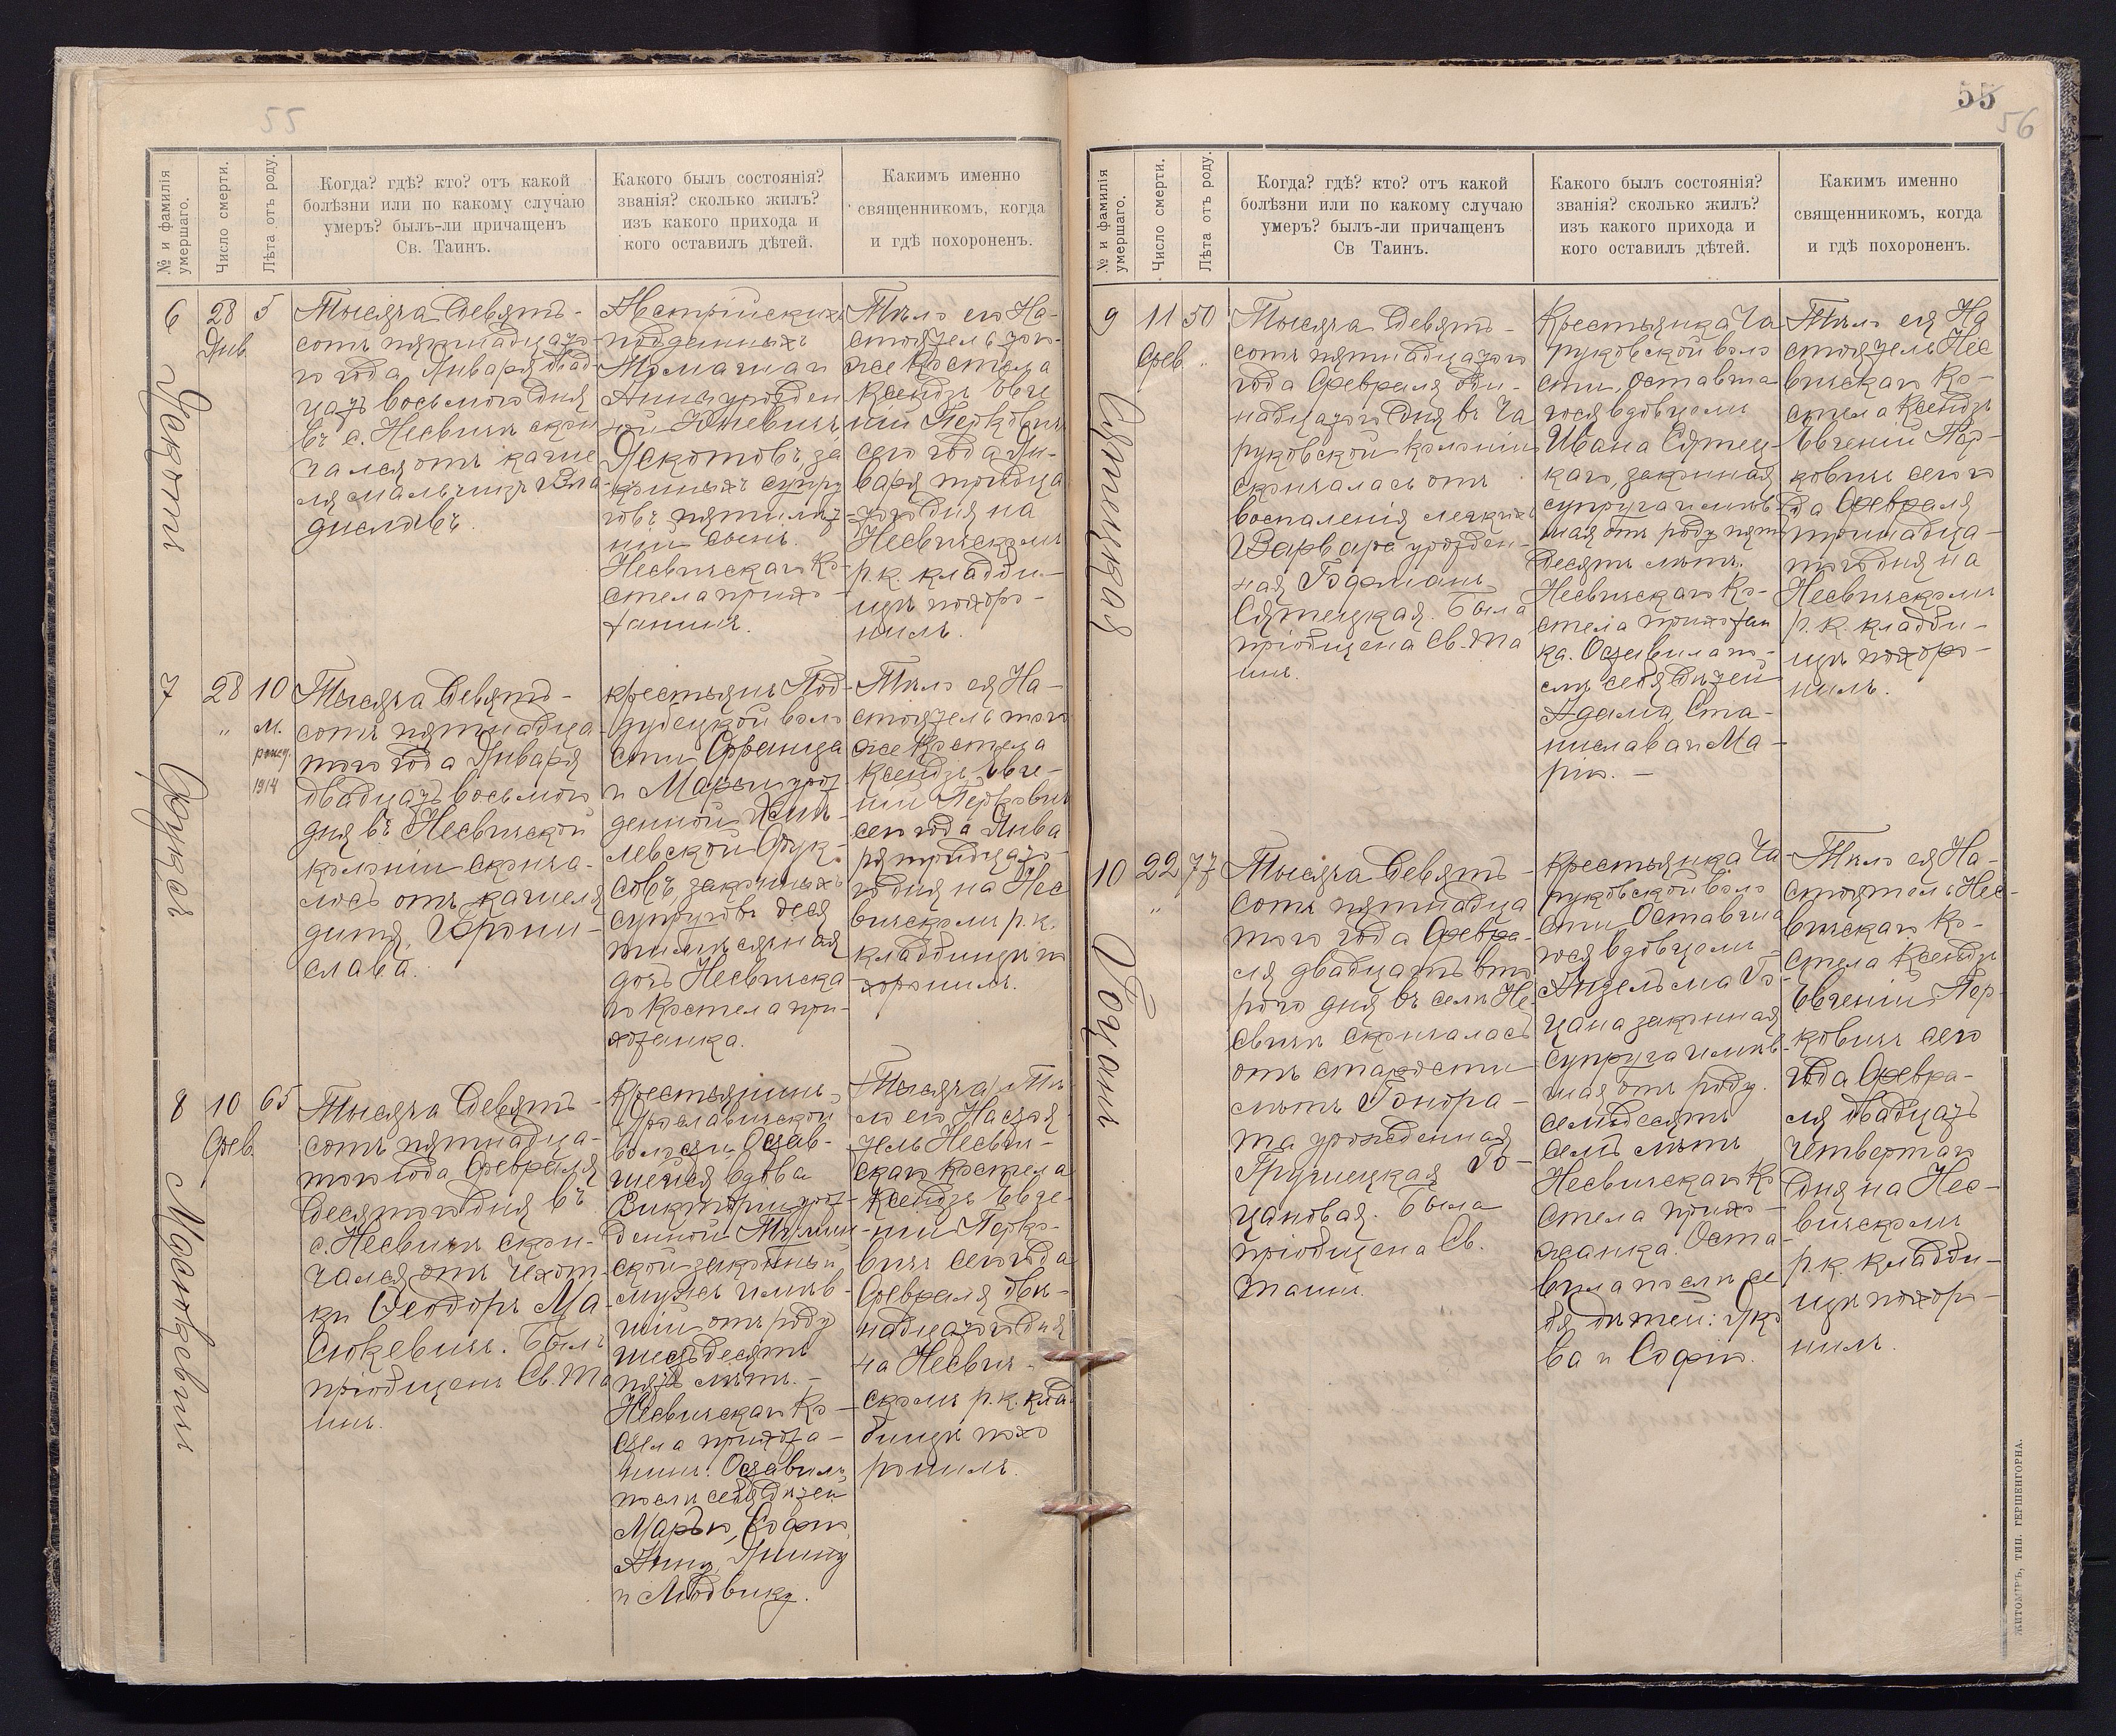 55
№ и фамилія умершаго.
Число смерти.
Лѣта отъ роду.
Когда? гдѣ? кто? отъ какой
болѣзни или по какому случаю
умеръ? былъ-ли причащенъ
Св. Таинъ.
Какого былъ состоянія?
званія? сколько жилъ?
изъ какого прихода и
кого оставилъ дѣтей.
Какимъ именно
священникомъ, когда
и гдѣ похороненъ.
6
28
Янв.
5
Тысяча девять-
сотъ пятнадцато-
го года, Января двад-
цать восьмого дня
въ с. Несвичѣ скон
чался отъ кашле
ля мальчикъ Вла-
диславъ.
Австрійскихъ
подданныхъ
Томаша и
Анны урожден
ной
за
конныхъ супру
говъ, пятилѣт
ній сынъ.
Несвичскаго Ко-
стела прихо-
жанинъ.
Тѣло его На-
стоятель того-
же Костела
Ксендзъ Евге
ній Перковичъ
сего года Ян-
варя тридца
таго дня на
Несвичскомъ
р. к. кладби-
щѣ похоро-
нилъ.
7
Фуксъ
28
"
10
м.
рожд.
1914
Тысяча девять-
сотъ пятнадца-
того года Января
двадцать восьмого
дня въ Несвичской
колоніи сконча-
лось отъ кашеля
дитя, Брони-
слава.
крестьянъ Под-
волости Франца
и Марьи урож
денной
Фук-
совъ законныхъ
супруговъ деся
тимѣсячная
дочь Несвичска
го Костела при-
хожанка.
Тѣло ея На-
стоятель того
же Костела
Ксендзъ Евге-
ній Перкович
сего года Янва
ря тридцато-
го дня на Нес
вичскомъ р. к.
кладбищѣ по
хоронилъ.
8
Масюкевичъ
10
Фев.
65
Тысяча девять-
сотъ пятнадца-
того года Февраля
десятого дня въ
с. Несвичѣ скон-
чался отъ чахот-
ки Ѳеодоръ Ма-
сюкевичъ. Былъ
пріобщенъ Св. Та
инъ.
Крестьянинъ
Ярославичской
волости, Остав-
шейся вдовы
Викторіи урож-
денной
законный
мужъ имѣв-
шій отъ роду
шестьдесятъ
пять лѣтъ.-
Несвичскаго Ко-
стела прихожа-
нинъ. Оставилъ
послѣ себя дѣтей
Марью, Софію,
Анну, Янину
и Людвику.
(Тысяча) Тѣ
ло его Настоя-
тель Несвич-
скаго Костела
Ксендзъ Евге-
ній Перко-
вичъ сего года
Февраля двѣ-
надцатого дня
на Несвич-
скомъ р. к. клад
бищѣ похо
ронилъ.
55
56
№ и фамилія умершаго.
Число смерти.
Лѣта отъ роду.
Когда? гдѣ? кто? отъ какой
болѣзни или по какому случаю
умеръ? былъ-ли причащенъ
Св Таинъ.
Какого былъ состоянія?
званія? сколько жилъ?
изъ какого прихода и
кого оставилъ дѣтей.
Какимъ именно
священникомъ, когда
и гдѣ похороненъ.
9
Сятецкая
11
Фев.
50
Тысяча девять-
сотъ пятнадцатого
года Февраля оди-
надцатого дня въ Ча
руковской колоніи
скончалась отъ
воспаленія легкихъ
Варвара урожден-
ная Гофманъ
Сятецкая. Была
пріобщена Св. Та
инъ.
Крестьянка Ча
руковской воло
сти, оставша
гося вдовцомъ
Ивана Сятец-
каго, законная
супруга имѣв-
шая отъ роду пять
десятъ лѣтъ.
Несвичскаго Ко-
стела прихожан
ка. Оставила по-
слѣ себя дѣтей
Адама, Ста-
нислава и Ма-
рію. -
Тѣло ея На
стоятель Нес
вичскаго Ко-
стела Ксендзъ
Евгеній Пер-
ковичъ сего го
да Февраля
тринадца-
того дня на
Несвичскомъ
р. к. кладби-
щѣ похоро-
нилъ.
10
Гоцанъ
22
"
77
Тысяча девять-
сотъ пятнадца
того года Февра-
ля двадцать вто
рого дня въ селѣ Не-
свичѣ скончалась
отъ старости
лѣтъ Гонора-
та урожденная
Го-
цановая. Была
пріобщена Св.
Таинъ.
крестьянка Ча
руковской воло
сти, Оставша
гося вдовцомъ
Анзельма Го-
цана законная
супруга имѣв-
шая отъ роду
семьдесятъ
семь лѣтъ
Несвичскаго Ко
стела прихо-
жанка. Оста-
вила послѣ се
бя дѣтей: Яко
ва и Софію.
Тѣло ея На-
стоятель Нес-
вичскаго Ко-
стела Ксендзъ
Евгеній Пер-
ковичъ сего
года Февра-
ля двадцать
четвертаго
дня на Нес-
вичскомъ
р. к. кладби-
щѣ похоро-
нилъ.
ЖИТОМІРЪ, ТИП. ГЕРШЕНГОРНА.